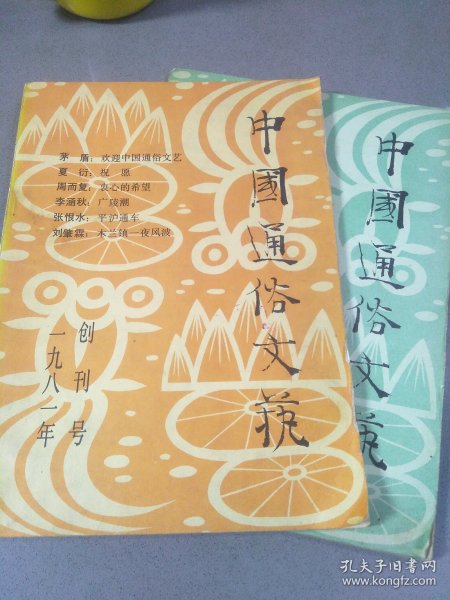 中國通俗文藝
茅盾：欢迎中国通俗文艺
夏衍：祝愿
周而复：衷心的希望
李涵秋：广陵潮
张恨水：平沪通车
刘肇霖：木兰镇一夜风波
创刊号
一九八一年
中國通俗文藝
孔夫子旧书网
www.kongfz.com